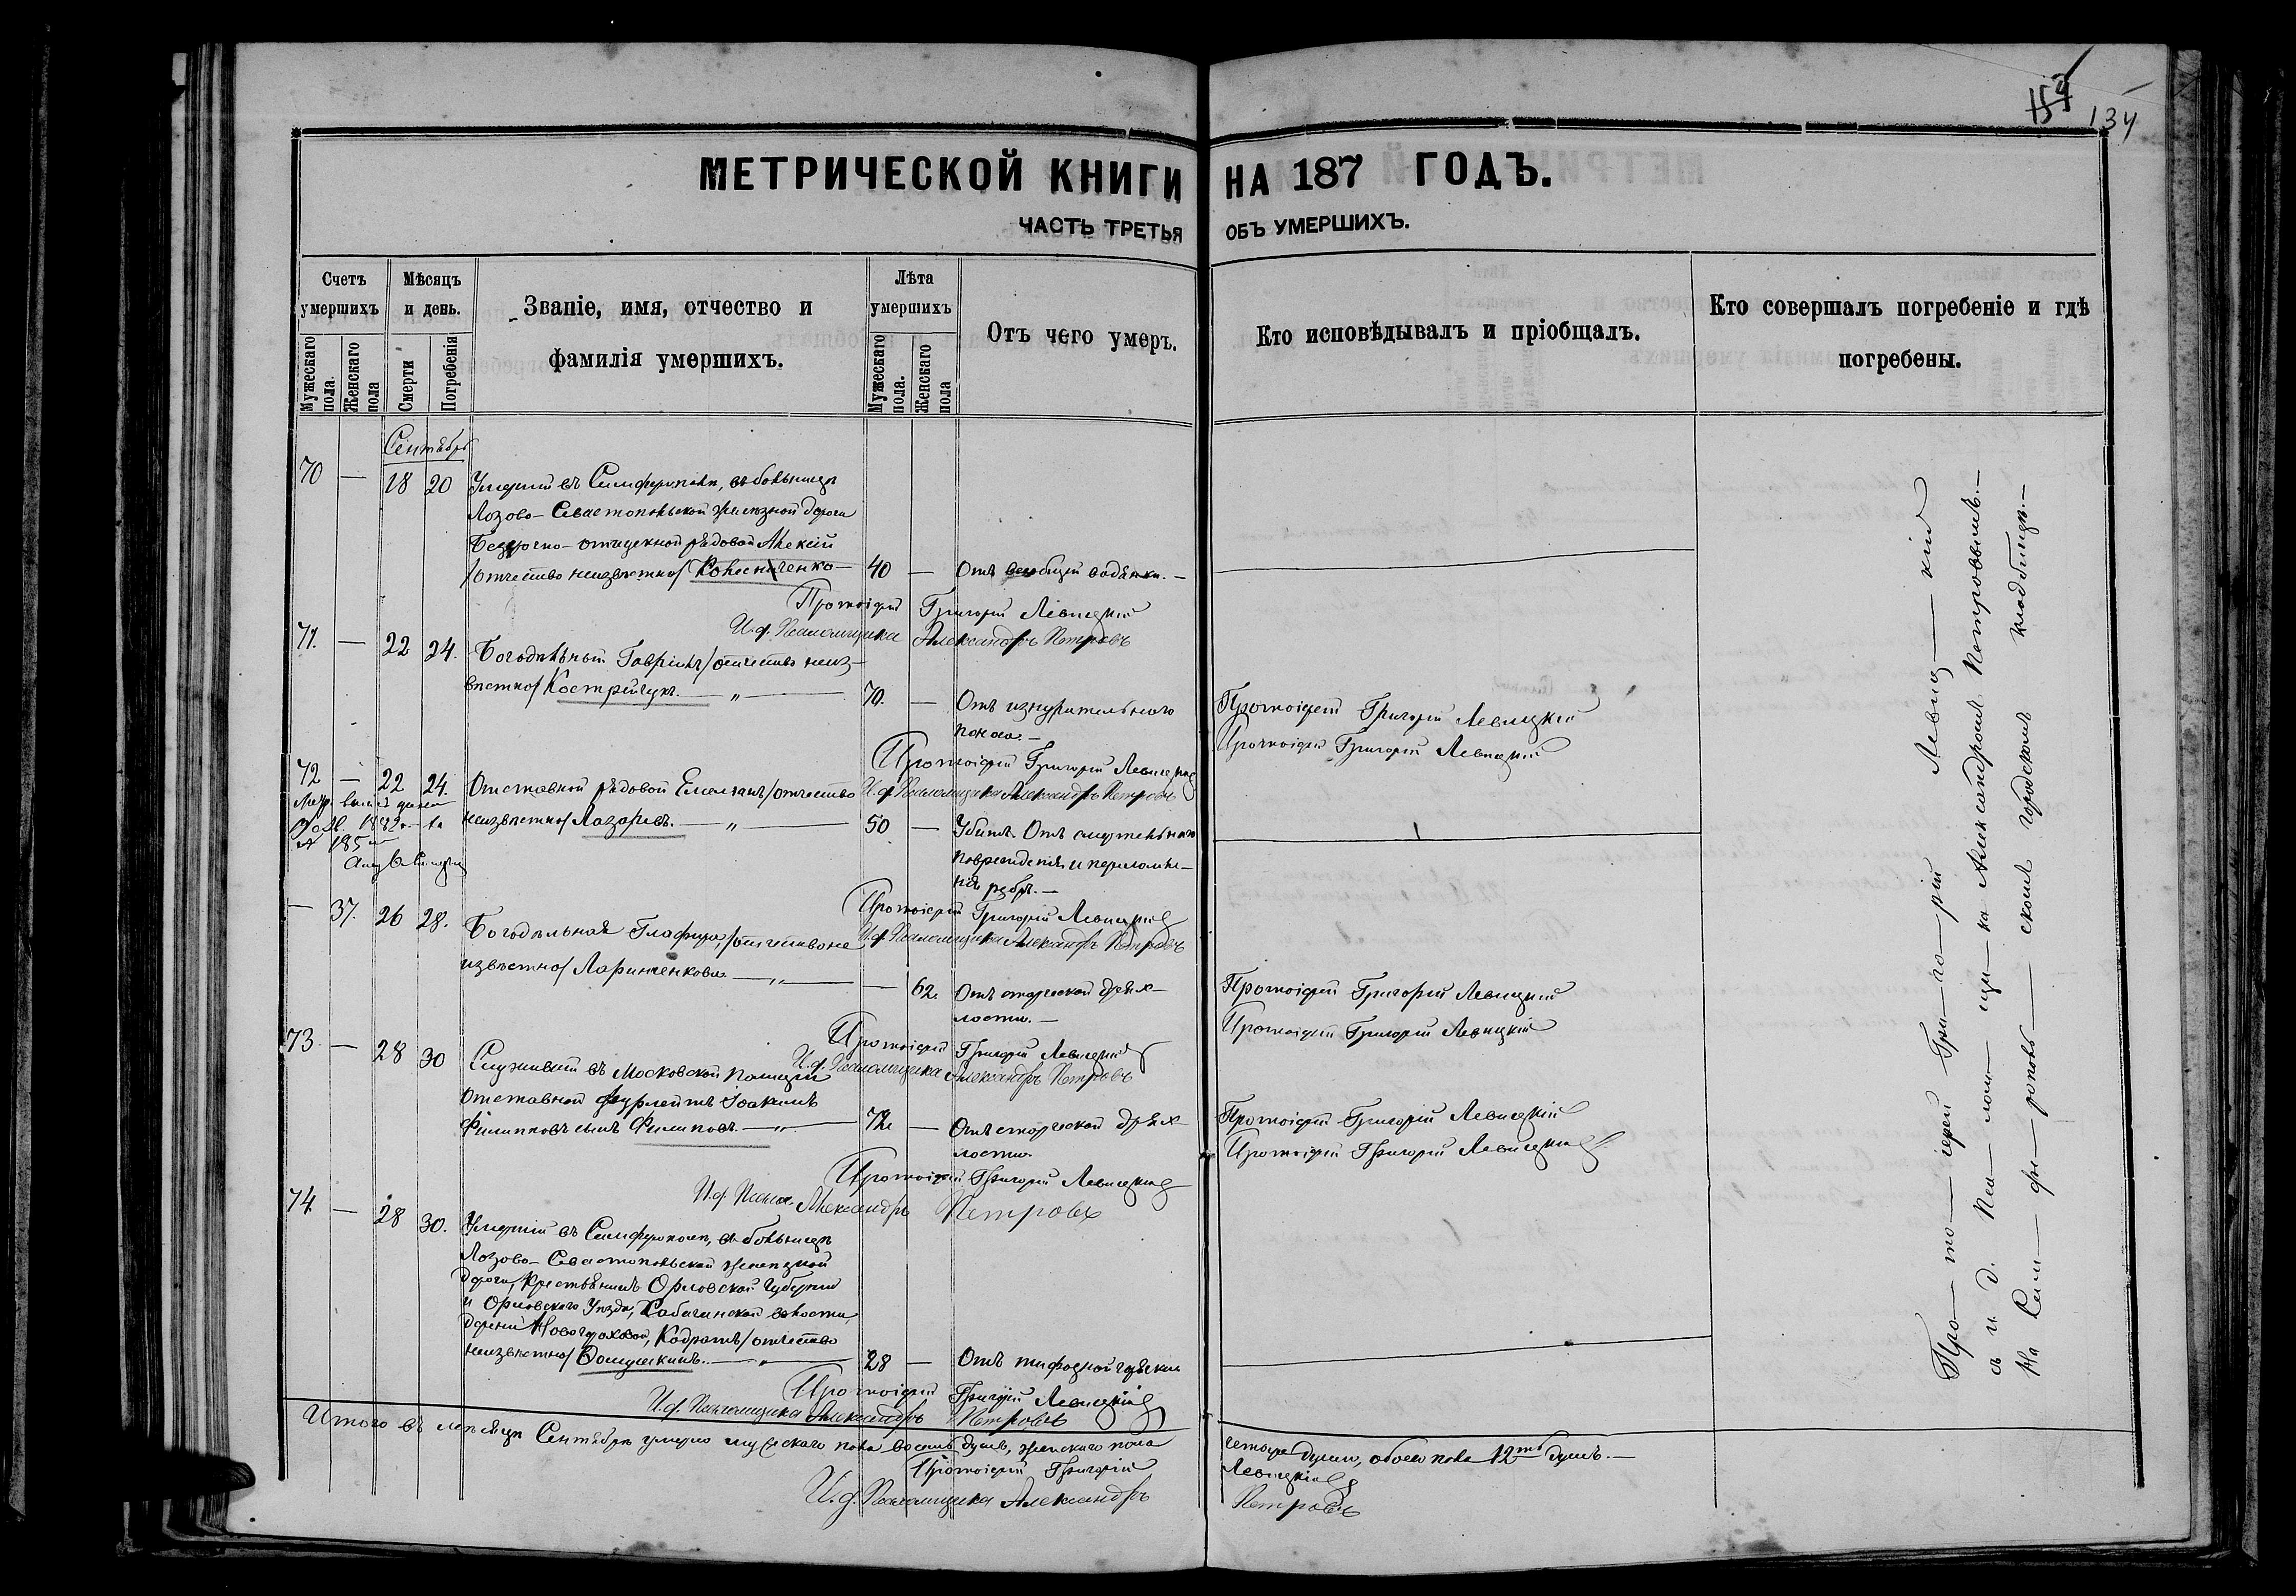 134
МЕТРИЧЕСКОЙ КНИГИ НА 187 ГОДЪ.
ЧАСТЬ ТРЕТЬЯ ОБЪ УМЕРШИХЪ.
Счетъ умершихъ
Мужескаго пола.
Женскаго пола
Мѣсяцъ и день.
Смерти
Погребенія
Званіе, имя, отчество и
фамилія умершихъ.
Лѣта умершихъ
Мужескаго пола.
Женскаго пола
Отъ чего умеръ.
Кто исповѣдывалъ и пріобщалъ.
Кто совершалъ погребеніе и гдѣ
погребены.
Сентябрь
70 — 18 20 Умершій въ Симферополѣ, въ больницѣ
Лозово-Севастопольской желѣзной дороги
Безсрочно-отпускной рядовой Алексій
/отчество неизвѣстно/ Колесниченко — 40 — Отъ всеобщей водянки. —
Протоіерей Григорій Левицкій
И. д. Псаломщика Александръ Петровъ
71. — 22 24. Богодѣльный Гавріилъ /отчество неиз-
вѣстно/ Кострейчук. — „ — 70. — Отъ изнурительнаго
поноса. —
Протоіерей Григорій Левицкій
Протоіерей Григорій Левицкій
Протоіерей Григорій Левицкій
72 — 22 24. Отставной рядовой Емельянъ /отчество
И. д. Псаломщика Александръ Петровъ
неизвѣстно/ Лазаревъ. — „ — 50 — Убитъ. Отъ смертельнаго
поврежденія и переломле-
нія ребръ. —
Протоіерей Григорій Левицкій
— 37. 26 28. Богодѣльная Глафира, /отчество не
И. д. Псаломщика Александръ Петровъ
извѣстно/ Ларинченкова — „ — — 62. Отъ старческой дрях-
лости. —
Протоіерей Григорій Левицкій
Протоіерей Григорій Левицкій
Протоіерей Григорій Левицкій
И. д. Псаломщика Александръ Петровъ
73 — 28 30 Служившій въ Московской полиціи
Отставной фурлейтъ Іоакимъ
Филипповъ сынъ Филиповъ. — „ — 72 — Отъ старческой дрях-
лости.
Протоіерей Григорій Левицкій
Протоіерей Григорій Левицкій
Протоіерей Григорій Левицкій
И. д. Псалом. Александръ Петровъ
74 — 28 30. Умершій въ Симферополѣ, въ больницѣ
Лозово-Севастопольской желѣзной
дороги, Крестьянинъ Орловской Губерніи
и Орловскаго Уѣзда, волости,
деревни Кодратъ /отчество
неизвѣстно/ — „ — 28 — Отъ тифозной горячки
Протоіерей Григорій Левицкій
И. д. Псаломщика Александръ Петровъ
Итого въ мѣсяцѣ Сентябрѣ умерло мужескаго пола восемь душъ, женскаго пола четыре души, обоего пола 12ть душъ. —
Протоіерей Григорій Левицкій
И. д. Псаломщика Александръ Петровъ
Про — то — іерей Гри — го — рій Левиц — кій
съ и. д. Пса — лом — щи — ка Александромъ Петровымъ. —
На Сим — фе — рополь — скомъ городскомъ кладбищѣ. —